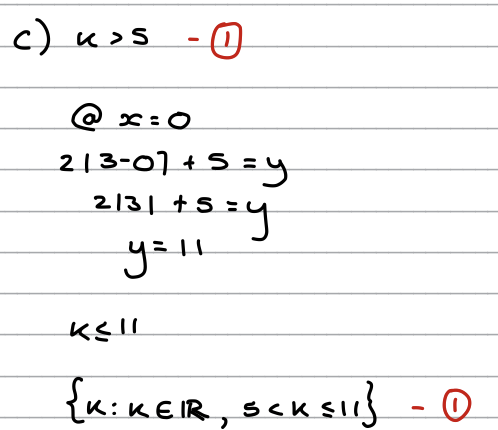 c) k > 5 - ①
@ x = 0
2|3-0| + 5 = y
2|3| + 5 = y
y = 11
k ≤ 11
{k: k ∈ ℝ, 5 < k ≤ 11} - ①